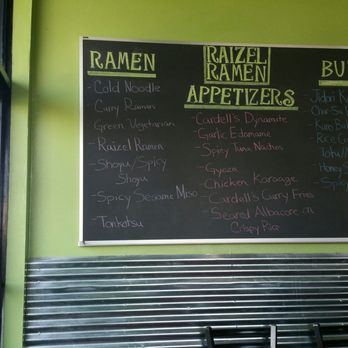 RAMEN
- Cold Noodle
- Curry Ramen
- Green Vegetarian
- Raizel Ramen
- Shoyu/Spicy
Shoyu
- Spicy Sesame Miso
- Tonkatsu
RAIZEL
RAMEN
APPETIZERS
- Cardell's Dynamite
- Garlic Edamame
- Spicy Tuna Nachos
- Gyoza
- Chicken Karaage
- Cardell's Curry Fries
- Seared Albacore on
Crispy Rice
BU
- Jidori
- Kuro Bu
- Rice
- Tofu
- Honey